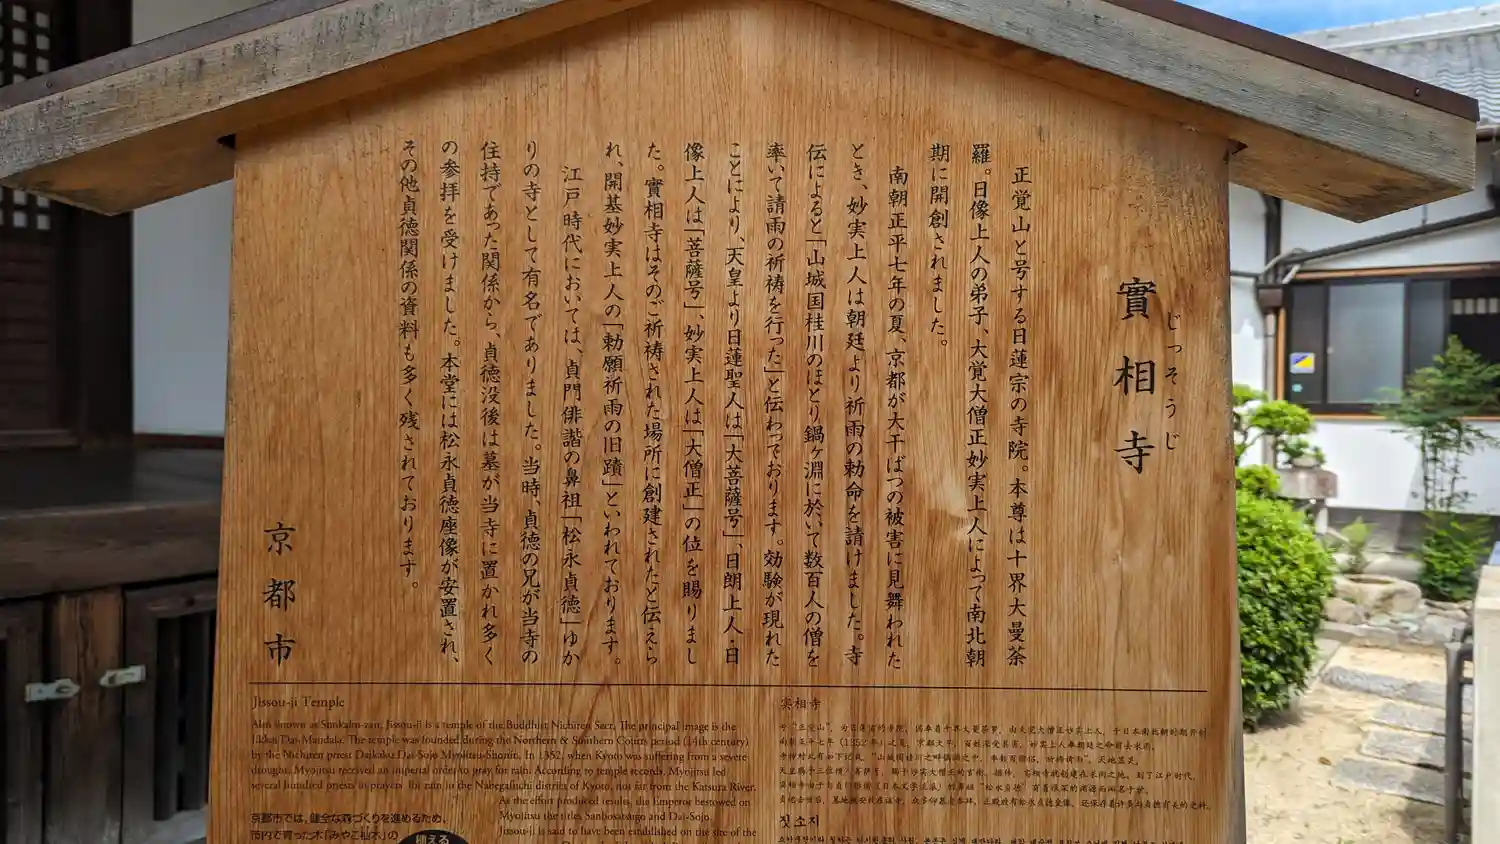 じっそうじ
實相寺
正覚山と号する日蓮宗の寺院。本尊は十界大曼荼
羅。日像上人の弟子、大覚大僧正妙実上人によって南北朝
期に開創されました。
南朝正平七年の夏、京都が大干ばつの被害に見舞われた
とき、妙実上人は朝廷より祈雨の勅命を請けました。寺
伝によると「山城国桂川のほとり鍋ヶ淵に於いて数百人の僧を
率いて請雨の祈祷を行った」と伝わっております。効験が現れた
ことにより、天皇より日蓮聖人は「大菩薩号」、日朗上人・日
像上人は「菩薩号」、妙実上人は「大僧正」の位を賜りまし
た。實相寺はそのご祈祷された場所に創建されたと伝えら
れ、開基妙実上人の「勅願祈雨の旧蹟」といわれております。
江戸時代においては、貞門俳諧の鼻祖「松永貞徳」ゆか
りの寺として有名でありました。当時、貞徳の兄が当寺の
住持であった関係から、貞徳没後は墓が当寺に置かれ多く
の参拝を受けました。本堂には松永貞徳座像が安置され、
その他貞徳関係の資料も多く残されております。
京都市
Jissou-ji Temple
Also known as Shokaku-zan, Jissou-ji is a temple of the Buddhist Nichiren Sect. The principal image is the
Jikkai Dai-Mandala. The temple was founded during the Northern & Southern Courts period (14th century)
by the Nichiren priest Daikaku Dai-Sojo Myojitsu-Shonin. In 1352, when Kyoto was suffering from a severe
drought, Myojitsu received an imperial order to pray for rain. According to temple records, Myojitsu led
several hundred priests in prayers for rain in the Nabegafuchi district of Kyoto, not far from the Katsura River.
As the effort produced results, the Emperor bestowed on
Myojitsu the titles Sanbosatsugo and Dai-Sojo.
Jissou-ji is said to have been established on the site of the
京都市では、健全な森づくりを進めるため、
市内で育った木「みやこ杣木」の
実相寺
짓소지